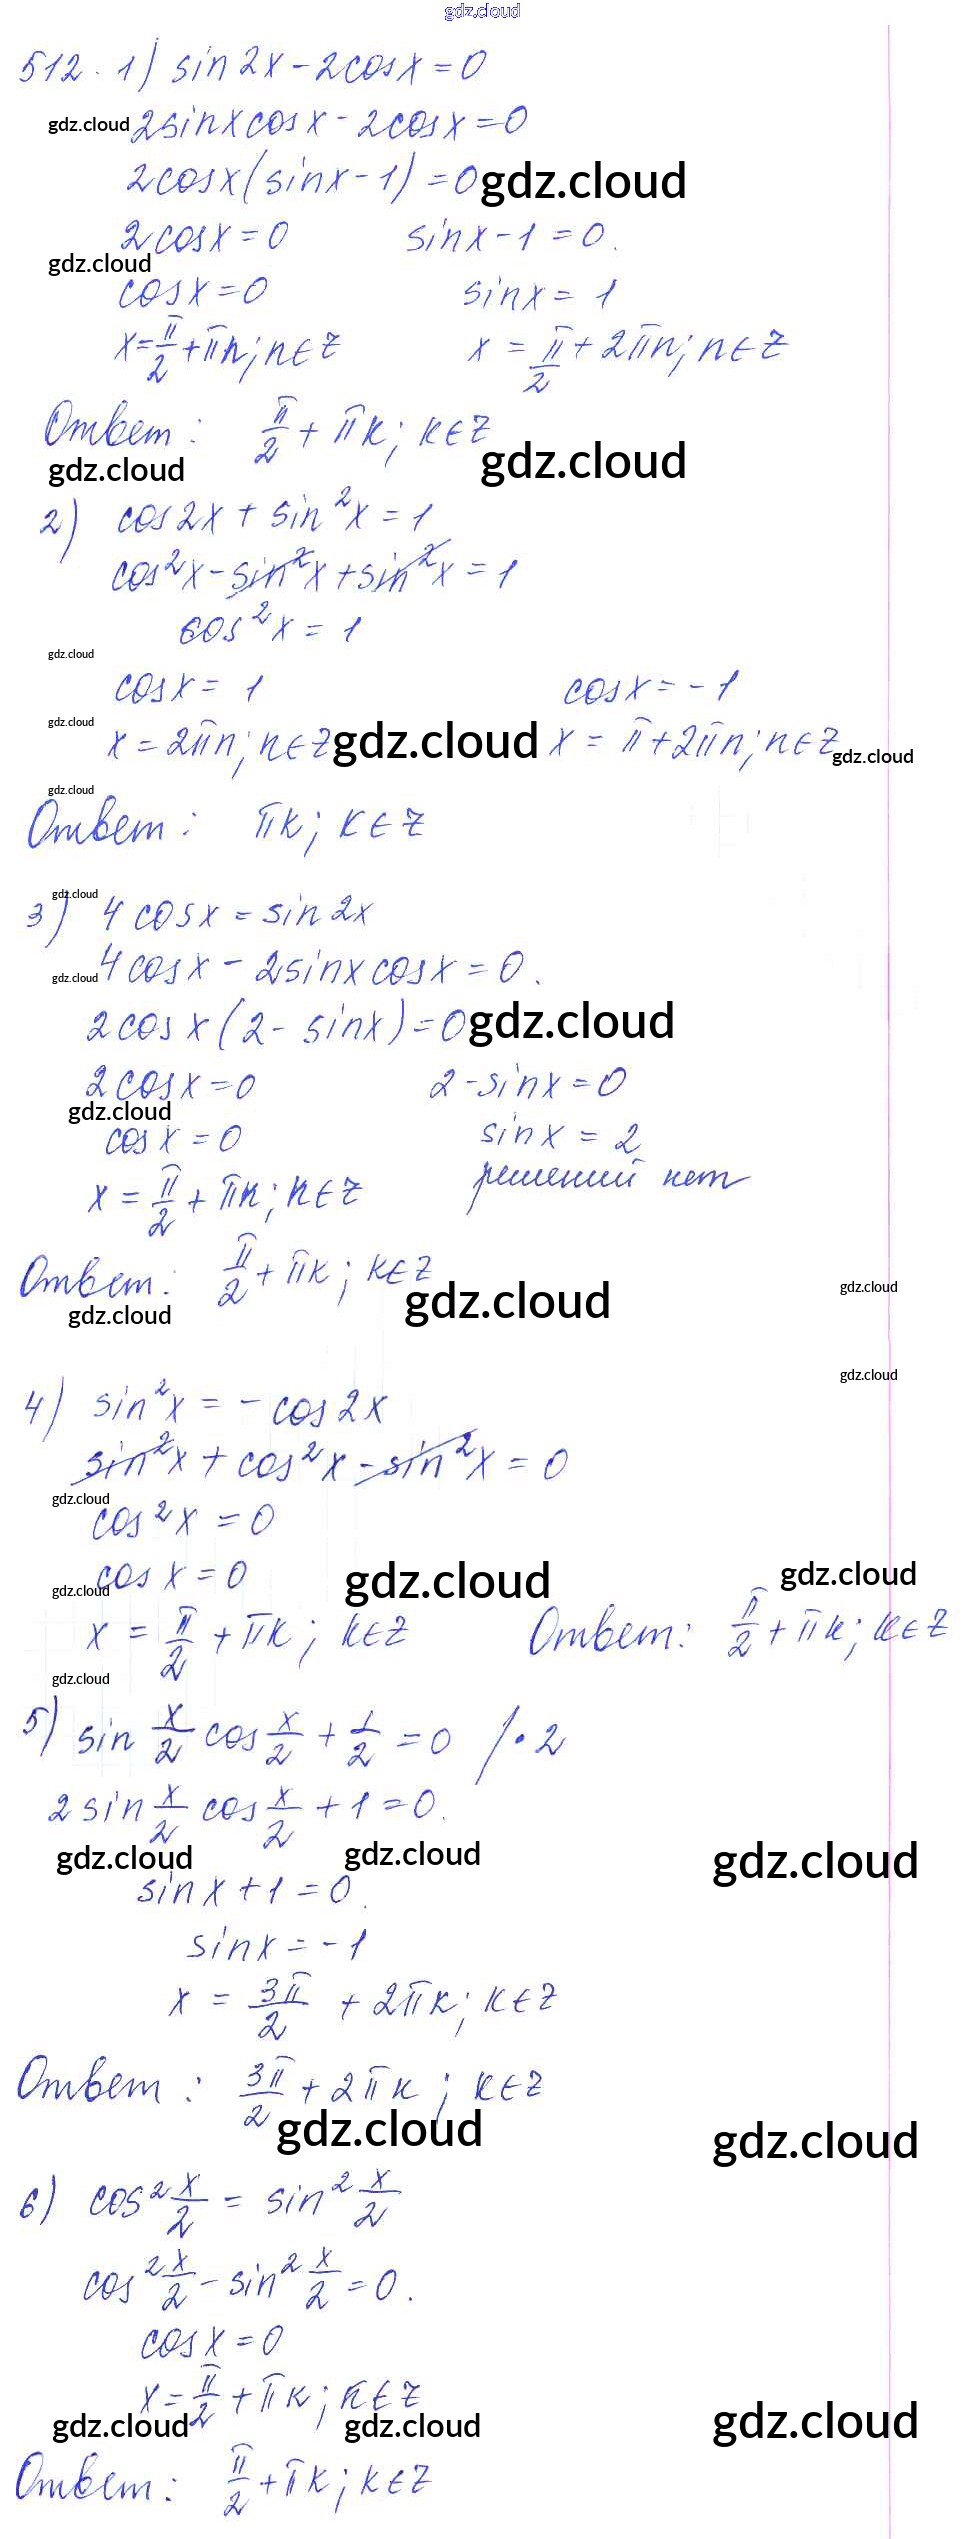 gdz.cloud
512. 1) sin2x - 2cosx = 0
gdz.cloud 2sinxcosx - 2cosx = 0
2cosx(sinx - 1) = 0 gdz.cloud
2cosx = 0 sinx - 1 = 0.
gdz.cloud
cosx = 0 sinx = 1
x = π/2 + πn; n∈Z x = π/2 + 2πn; n∈Z
Ответ: π/2 + πk; k∈Z
gdz.cloud gdz.cloud
2) cos2x + sin²x = 1
cos²x - sin²x + sin²x = 1
cos²x = 1
gdz.cloud
cosx = 1 cosx = -1
gdz.cloud
x = 2πn; n∈Z gdz.cloud x = π + 2πn; n∈Z gdz.cloud
gdz.cloud
Ответ: πk; k∈Z
gdz.cloud
3) 4cosx = sin2x
gdz.cloud 4cosx - 2sinxcosx = 0.
2cosx(2 - sinx) = 0 gdz.cloud
2cosx = 0 2 - sinx = 0
gdz.cloud
cosx = 0 sinx = 2
x = π/2 + πk; k∈Z решений нет
Ответ: π/2 + πk; k∈Z
gdz.cloud gdz.cloud gdz.cloud
gdz.cloud
4) sin²x = -cos2x
sin²x + cos²x - sin²x = 0
gdz.cloud
cos²x = 0
gdz.cloud cosx = 0 gdz.cloud gdz.cloud
x = π/2 + πk; k∈Z Ответ: π/2 + πk; k∈Z
gdz.cloud
5) sin x/2 cos x/2 + 1/2 = 0 /·2
2sin x/2 cos x/2 + 1 = 0.
gdz.cloud gdz.cloud gdz.cloud
sinx + 1 = 0.
sinx = -1
x = 3π/2 + 2πk; k∈Z
Ответ: 3π/2 + 2πk; k∈Z
gdz.cloud gdz.cloud
6) cos² x/2 = sin² x/2
cos² x/2 - sin² x/2 = 0.
cosx = 0
x = π/2 + πk; k∈Z
gdz.cloud gdz.cloud gdz.cloud
Ответ: π/2 + πk; k∈Z